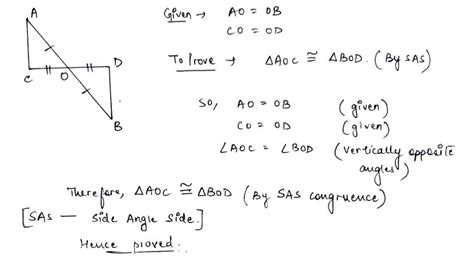 A
C
O
D
B
Given → AO = OB
CO = OD
To Prove → △AOC ≅ △BOD. (By SAS)
So, AO = OB (given)
CO = OD (given)
∠AOC = ∠BOD (vertically opposite
angles)
Therefore, △AOC ≅ △BOD (By SAS congruence)
[SAS — Side Angle Side.]
Hence proved.